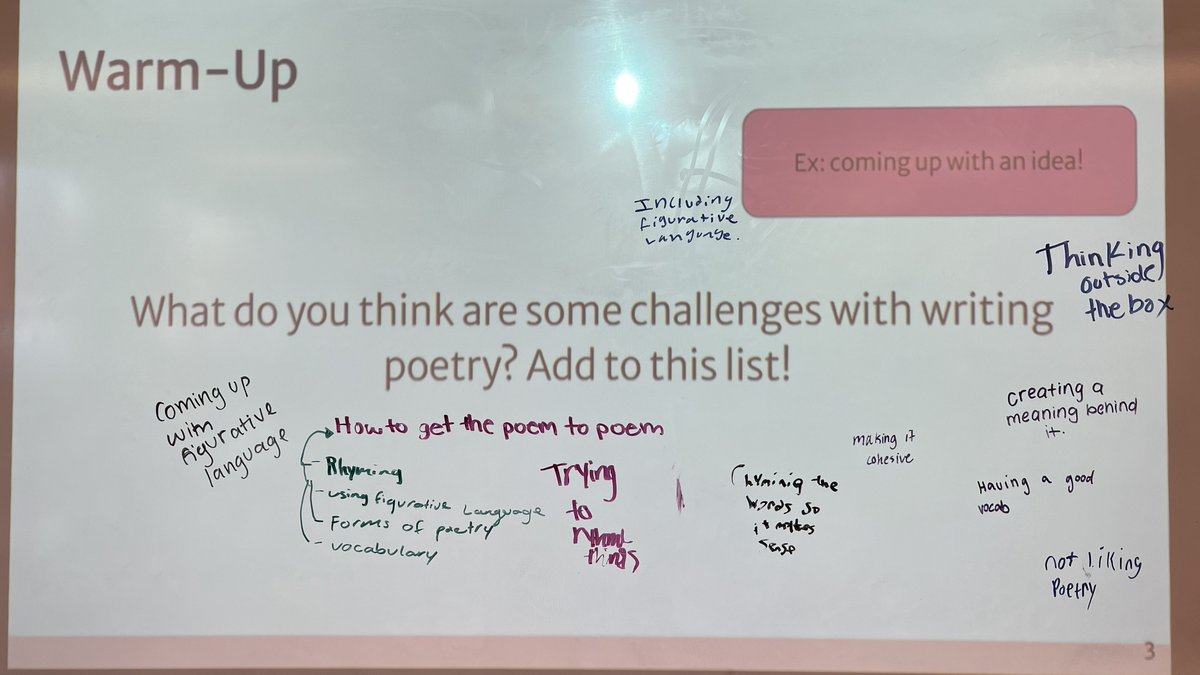 Warm-Up
Ex: coming up with an idea!
Including
figurative
Language.
Thinking
outside
the box
What do you think are some challenges with writing
poetry? Add to this list!
Coming up
with
figurative
language
How to get the poem to poem
- Rhyming
- using figurative Language
- Forms of poetry
- vocabulary
Trying
to
things
Rhyminig the
words so
it makes
sense
making it
cohesive
creating a
meaning behind
it.
Having a good
vocab
not liking
Poetry
3